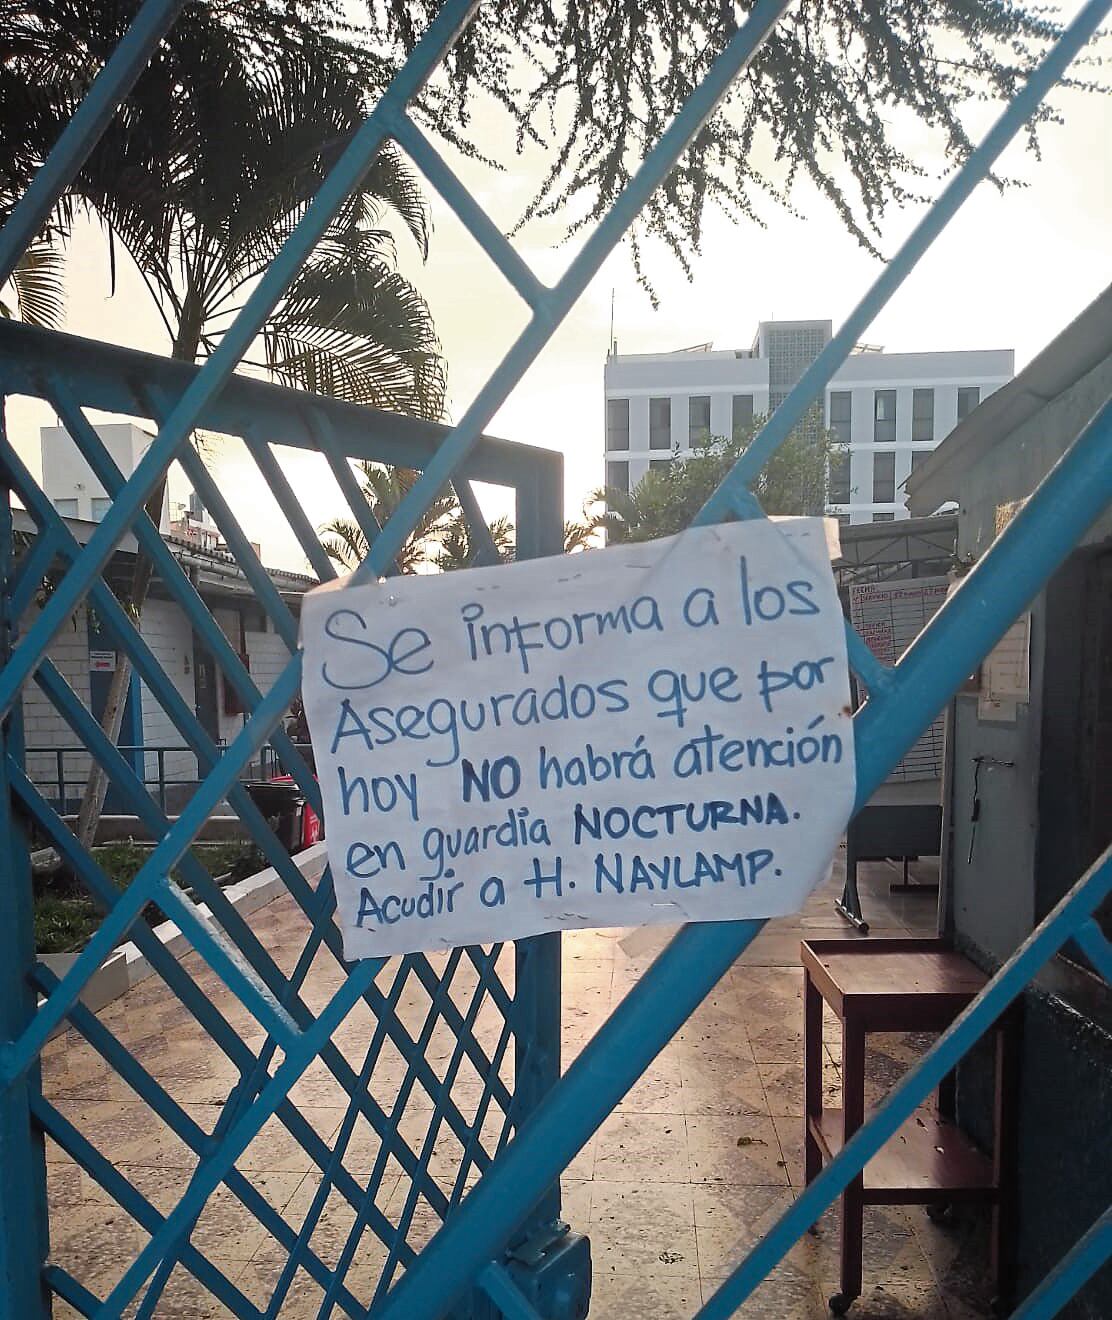 Se informa a los
Asegurados que por
hoy NO habrá atención
en guardia NOCTURNA.
Acudir a H. NAYLAMP.